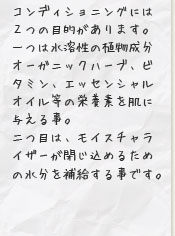 コンディショニングには
２つの目的があります。
一つは水溶性の植物成分
オーガニックハーブ、ビ
タミン、エッセンシャル
オイル等の栄養素を肌に
与える事。
二つ目は、モイスチャラ
イザーが閉じ込めるため
の水分を補給する事です。